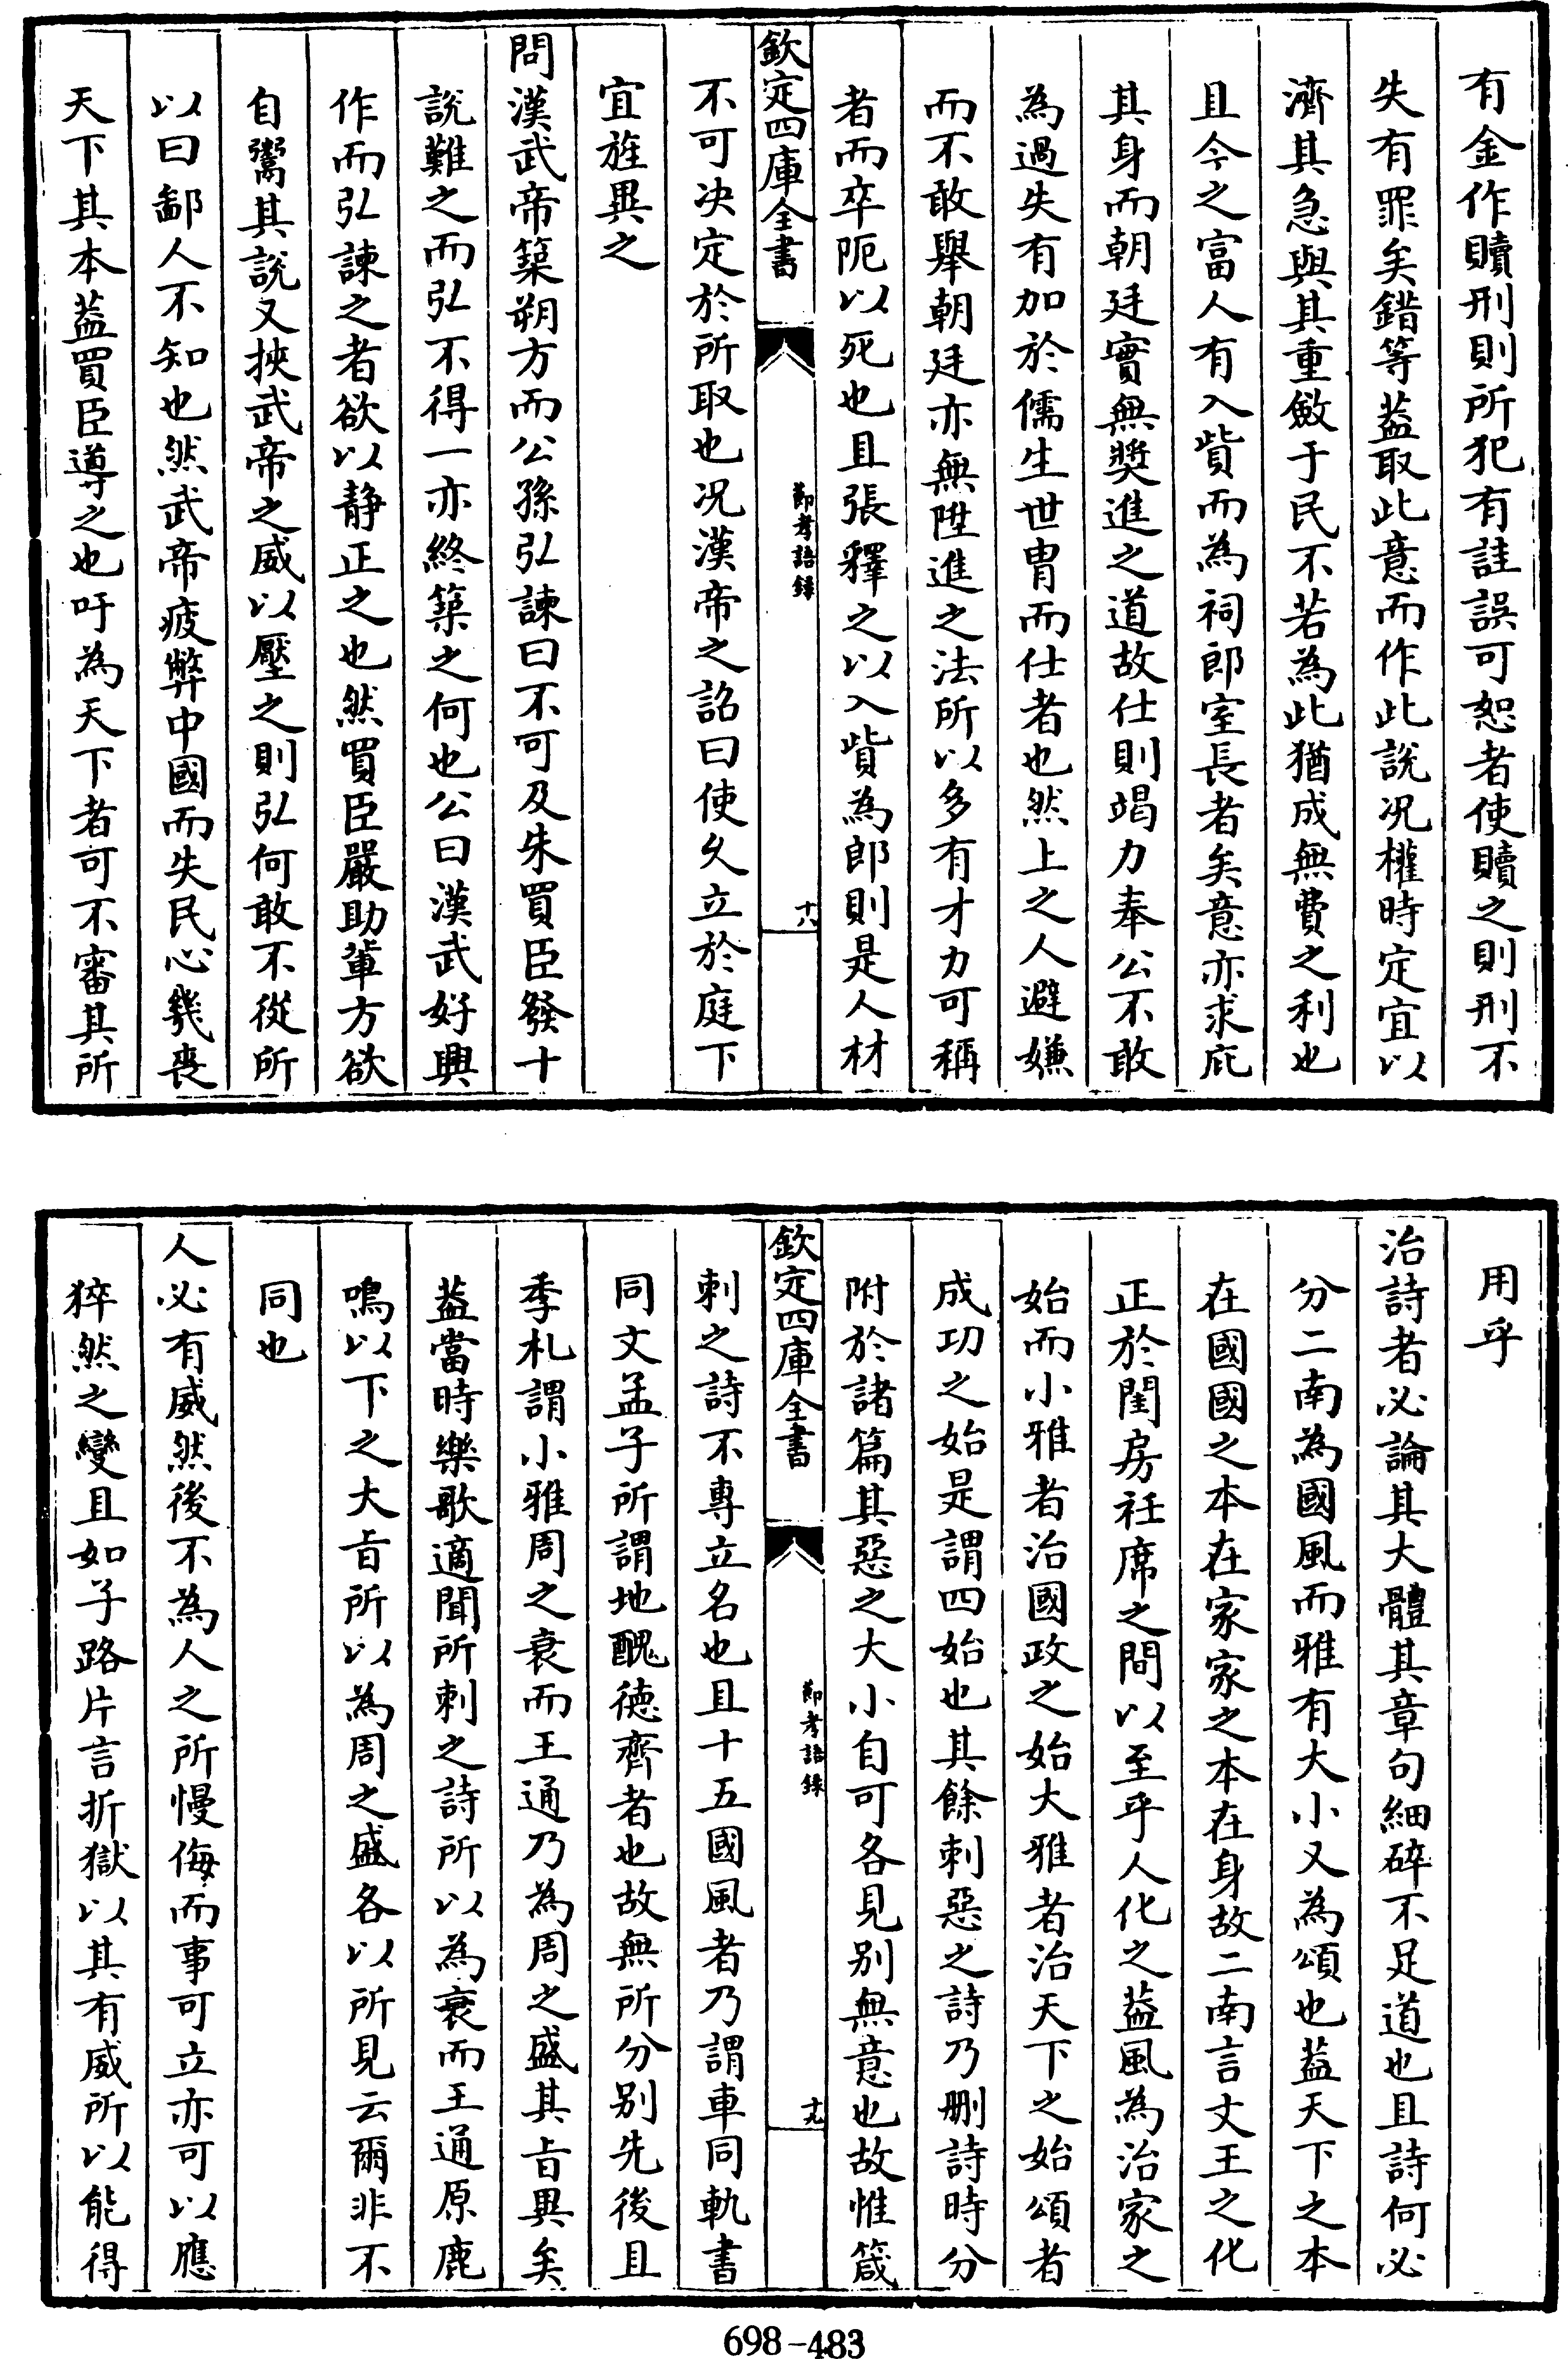 有金作贖刑則所犯有註誤可恕者使贖之則刑不
失有罪矣錯等葢取此意而作此說况權時定宜以
濟其急與其重斂于民不若為此猶成無費之利也
且今之富人有入貲而為祠郎室長者矣意亦求庇
其身而朝廷實無奬進之道故仕則竭力奉公不敢
為過失有加於儒生世胄而仕者也然上之人避嫌
而不敢舉朝廷亦無陞進之法所以多有才力可稱
者而卒阨以死也且張釋之以入貲為郎則是人材
欽定四庫全書
節孝語錄
十八
不可决定於所取也况漢帝之詔曰使久立於庭下
宜旌異之
問漢武帝築朔方而公孫弘諫曰不可及朱買臣發十
說難之而弘不得一亦終築之何也公曰漢武好興
作而弘諫之者欲以静正之也然買臣嚴助軰方欲
自鬻其說又挾武帝之威以壓之則弘何敢不從所
以曰鄙人不知也然武帝疲弊中國而失民心幾喪
天下其本葢買臣導之也吁為天下者可不審其所
用乎
治詩者必論其大體其章句細碎不足道也且詩何必
分二南為國風而雅有大小又為頌也葢天下之本
在國國之本在家家之本在身故二南言文王之化
正於閨房衽席之間以至乎人化之葢風為治家之
始而小雅者治國政之始大雅者治天下之始頌者
成功之始是謂四始也其餘刺惡之詩乃刪詩時分
附於諸篇其惡之大小自可各見别無意也故惟箴
欽定四庫全書
節孝語錄
十九
刺之詩不專立名也且十五國風者乃謂車同軌書
同文孟子所謂地醜徳齊者也故無所分别先後且
季札謂小雅周之衰而王通乃為周之盛其㫖異矣
葢當時樂歌適聞所刺之詩所以為衰而王通原鹿
鳴以下之大㫖所以為周之盛各以所見云爾非不
同也
人必有威然後不為人之所慢侮而事可立亦可以應
猝然之變且如子路片言折獄以其有威所以能得
698-483